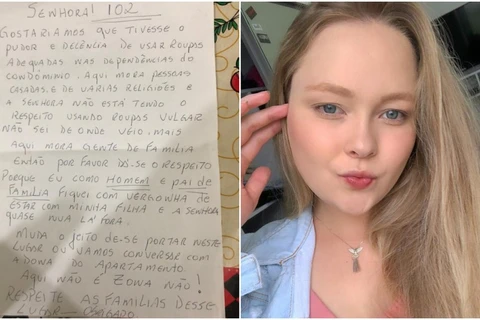 SENHORA! 102
GOSTARIAMOS QUE TIVESSE O
PUDOR E DECÊNCIA DE USAR ROUPAS
ADEQUADAS NAS DEPENDÊNCIAS DO
CONDOMÍNIO. AQUI MORA PESSOAS
CASADAS, E DE VARIAS RELIGIÕES E
A SENHORA NÃO ESTÁ TENDO O
RESPEITO USANDO ROUPAS VULGAR
NÃO SEI DE ONDE VEIO, MAIS
AQUI MORA GENTE DE FAMILIA
ENTÃO POR FAVOR DÊ-SE O RESPEITO
PORQUE EU COMO HOMEM E PAI DE
FAMÍLIA FIQUEI COM VERGONHA DE
ESTAR COM MINHA FILHA E A SENHORA
QUASE NUA LA FORA.
MUDA O JEITO DE-SE PORTAR NESTE
LUGAR OU VAMOS CONVERSAR COM
A DONA DO APARTAMENTO.
AQUI NÃO É ZONA NÃO!
RESPEITE AS FAMILIAS DESSE
LUGAR OBRIGADO